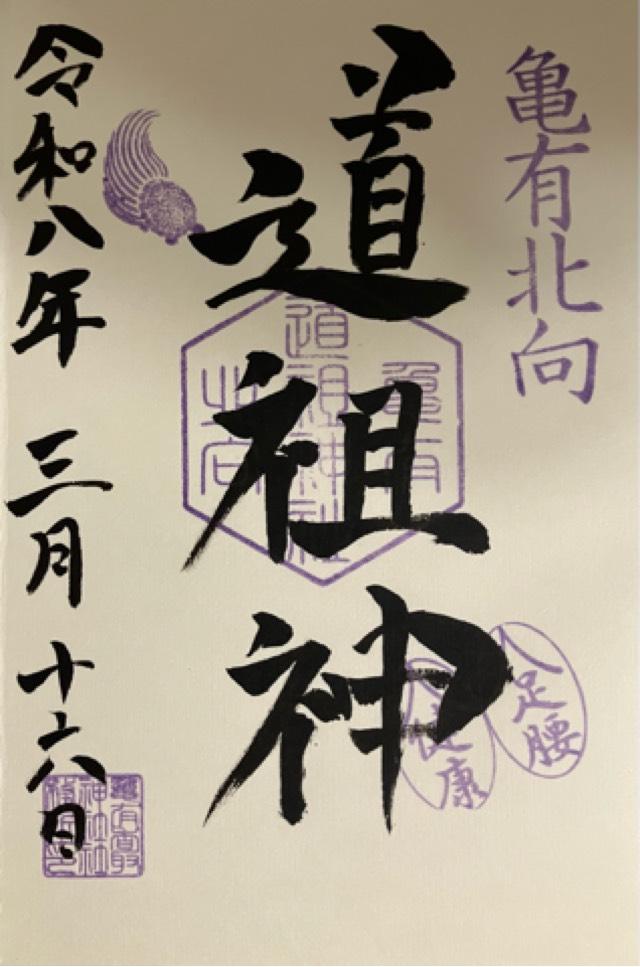 亀有北向
道祖神
亀有
道祖神社
北向
足腰
健康
令和八年 三月 十六日